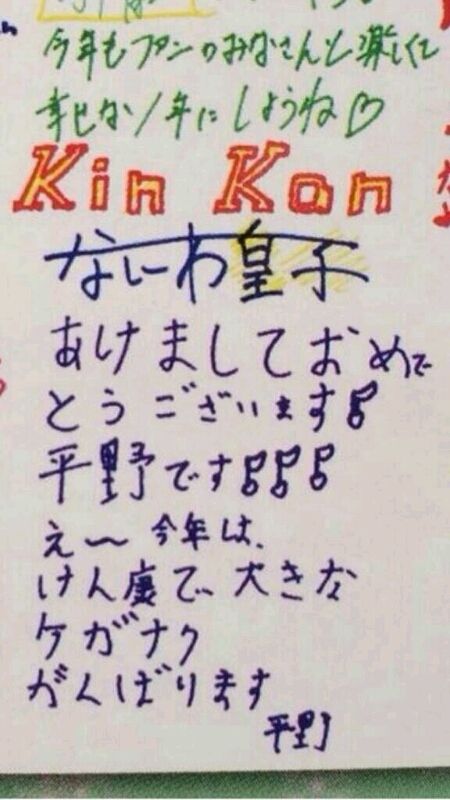 今年もファンのみなさんと楽しくて
幸せな1年にしようね♡
Kin Kan
なにわ皇子
あけましておめで
とうございます♪
平野です♪♪♪
え〜今年は、
けん康で大きな
ケガナク
がんばります
平野